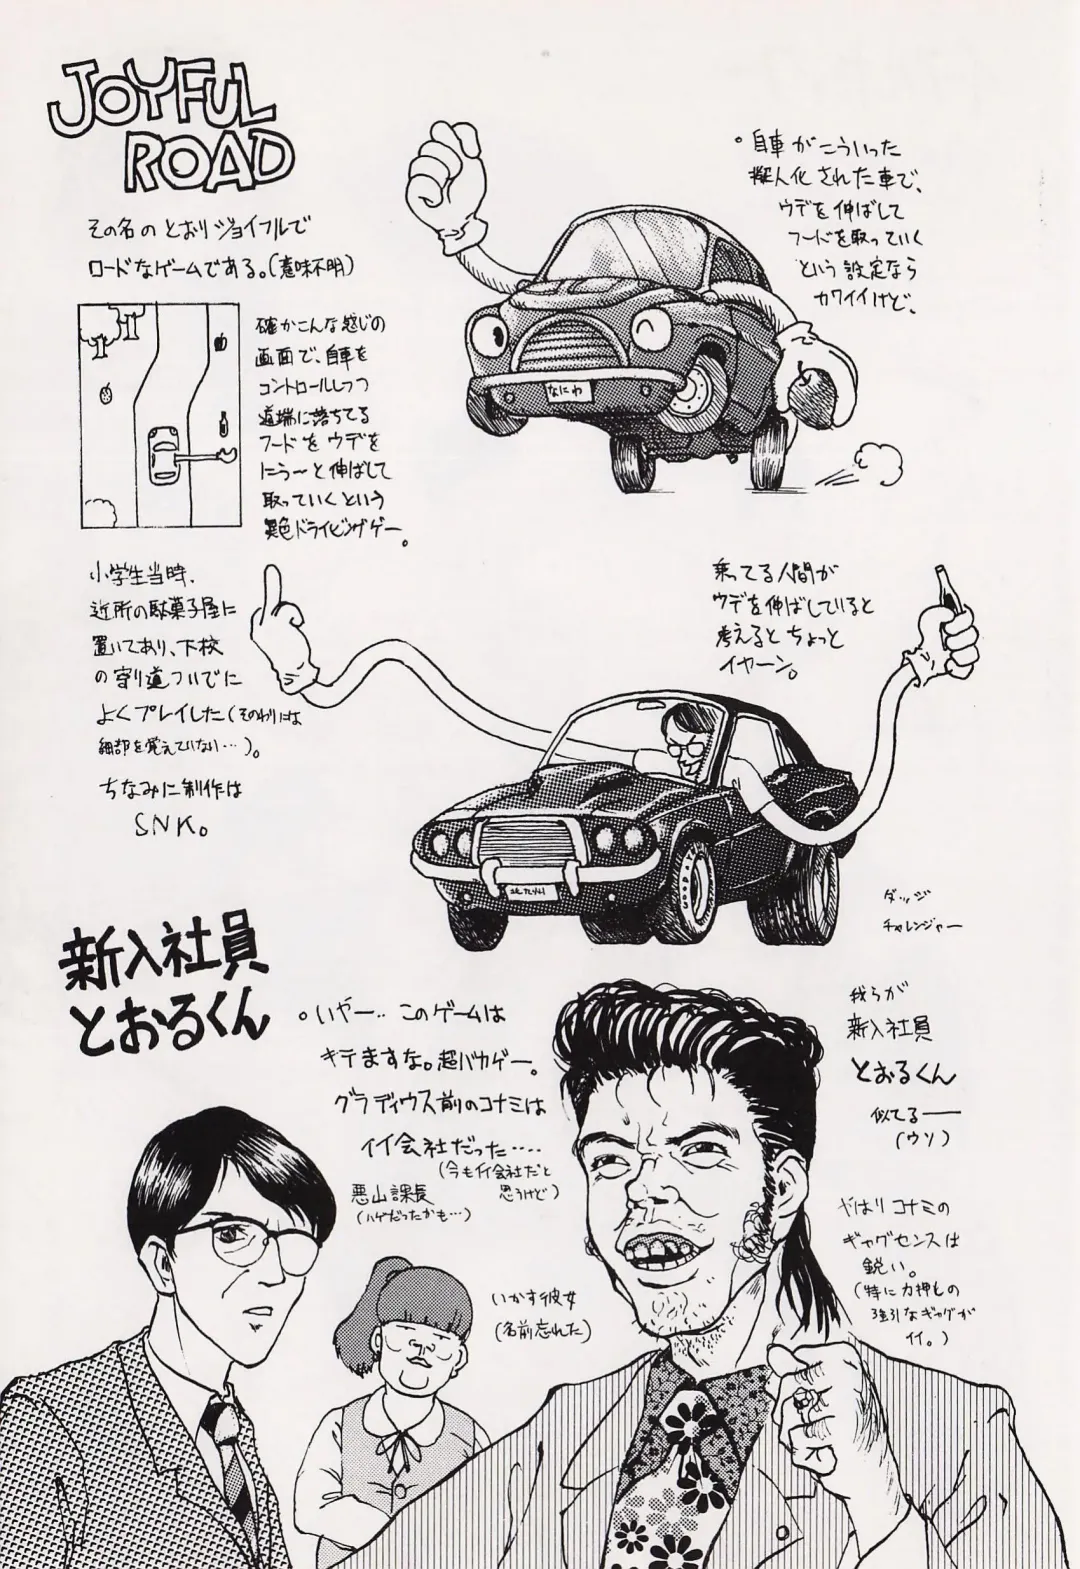 JOYFUL
ROAD
その名のとおりジョイフルで
ロードなゲームである。(意味不明)
確かこんな感じの
画面で、自車を
コントロールしつつ
道端に落ちてる
フードをウデを
にう〜と伸ばして
取っていくという
異色ドライビングゲー。
。自車がこういった
擬人化された車で、
ウデを伸ばして
フードを取っていく
という設定なら
カワイイけど、
なにわ
小学生当時、
近所の駄菓子屋に
置いてあり、下校
の寄り道ついでに
よくプレイした(そのわりには
細部を覚えていない…)。
ちなみに制作は
SNK。
乗ってる人間が
ウデを伸ばしていると
考えるとちょっと
イヤーン。
北九州
ダッジ
チャレンジャー
新入社員
とおるくん
。いやー‥このゲームは
キテますな。超バカゲー。
グラディウス前のコナミは
イイ会社だった‥‥
(今もイイ会社だと
思うけど)
悪山課長
(ハゲだったかも…)
いかす彼女
(名前忘れた)
我らが
新入社員
とおるくん
似てるー
(ウソ)
やはりコナミの
ギャグセンスは
鋭い。
(特に力押しの
強引なギャグが
イイ。)